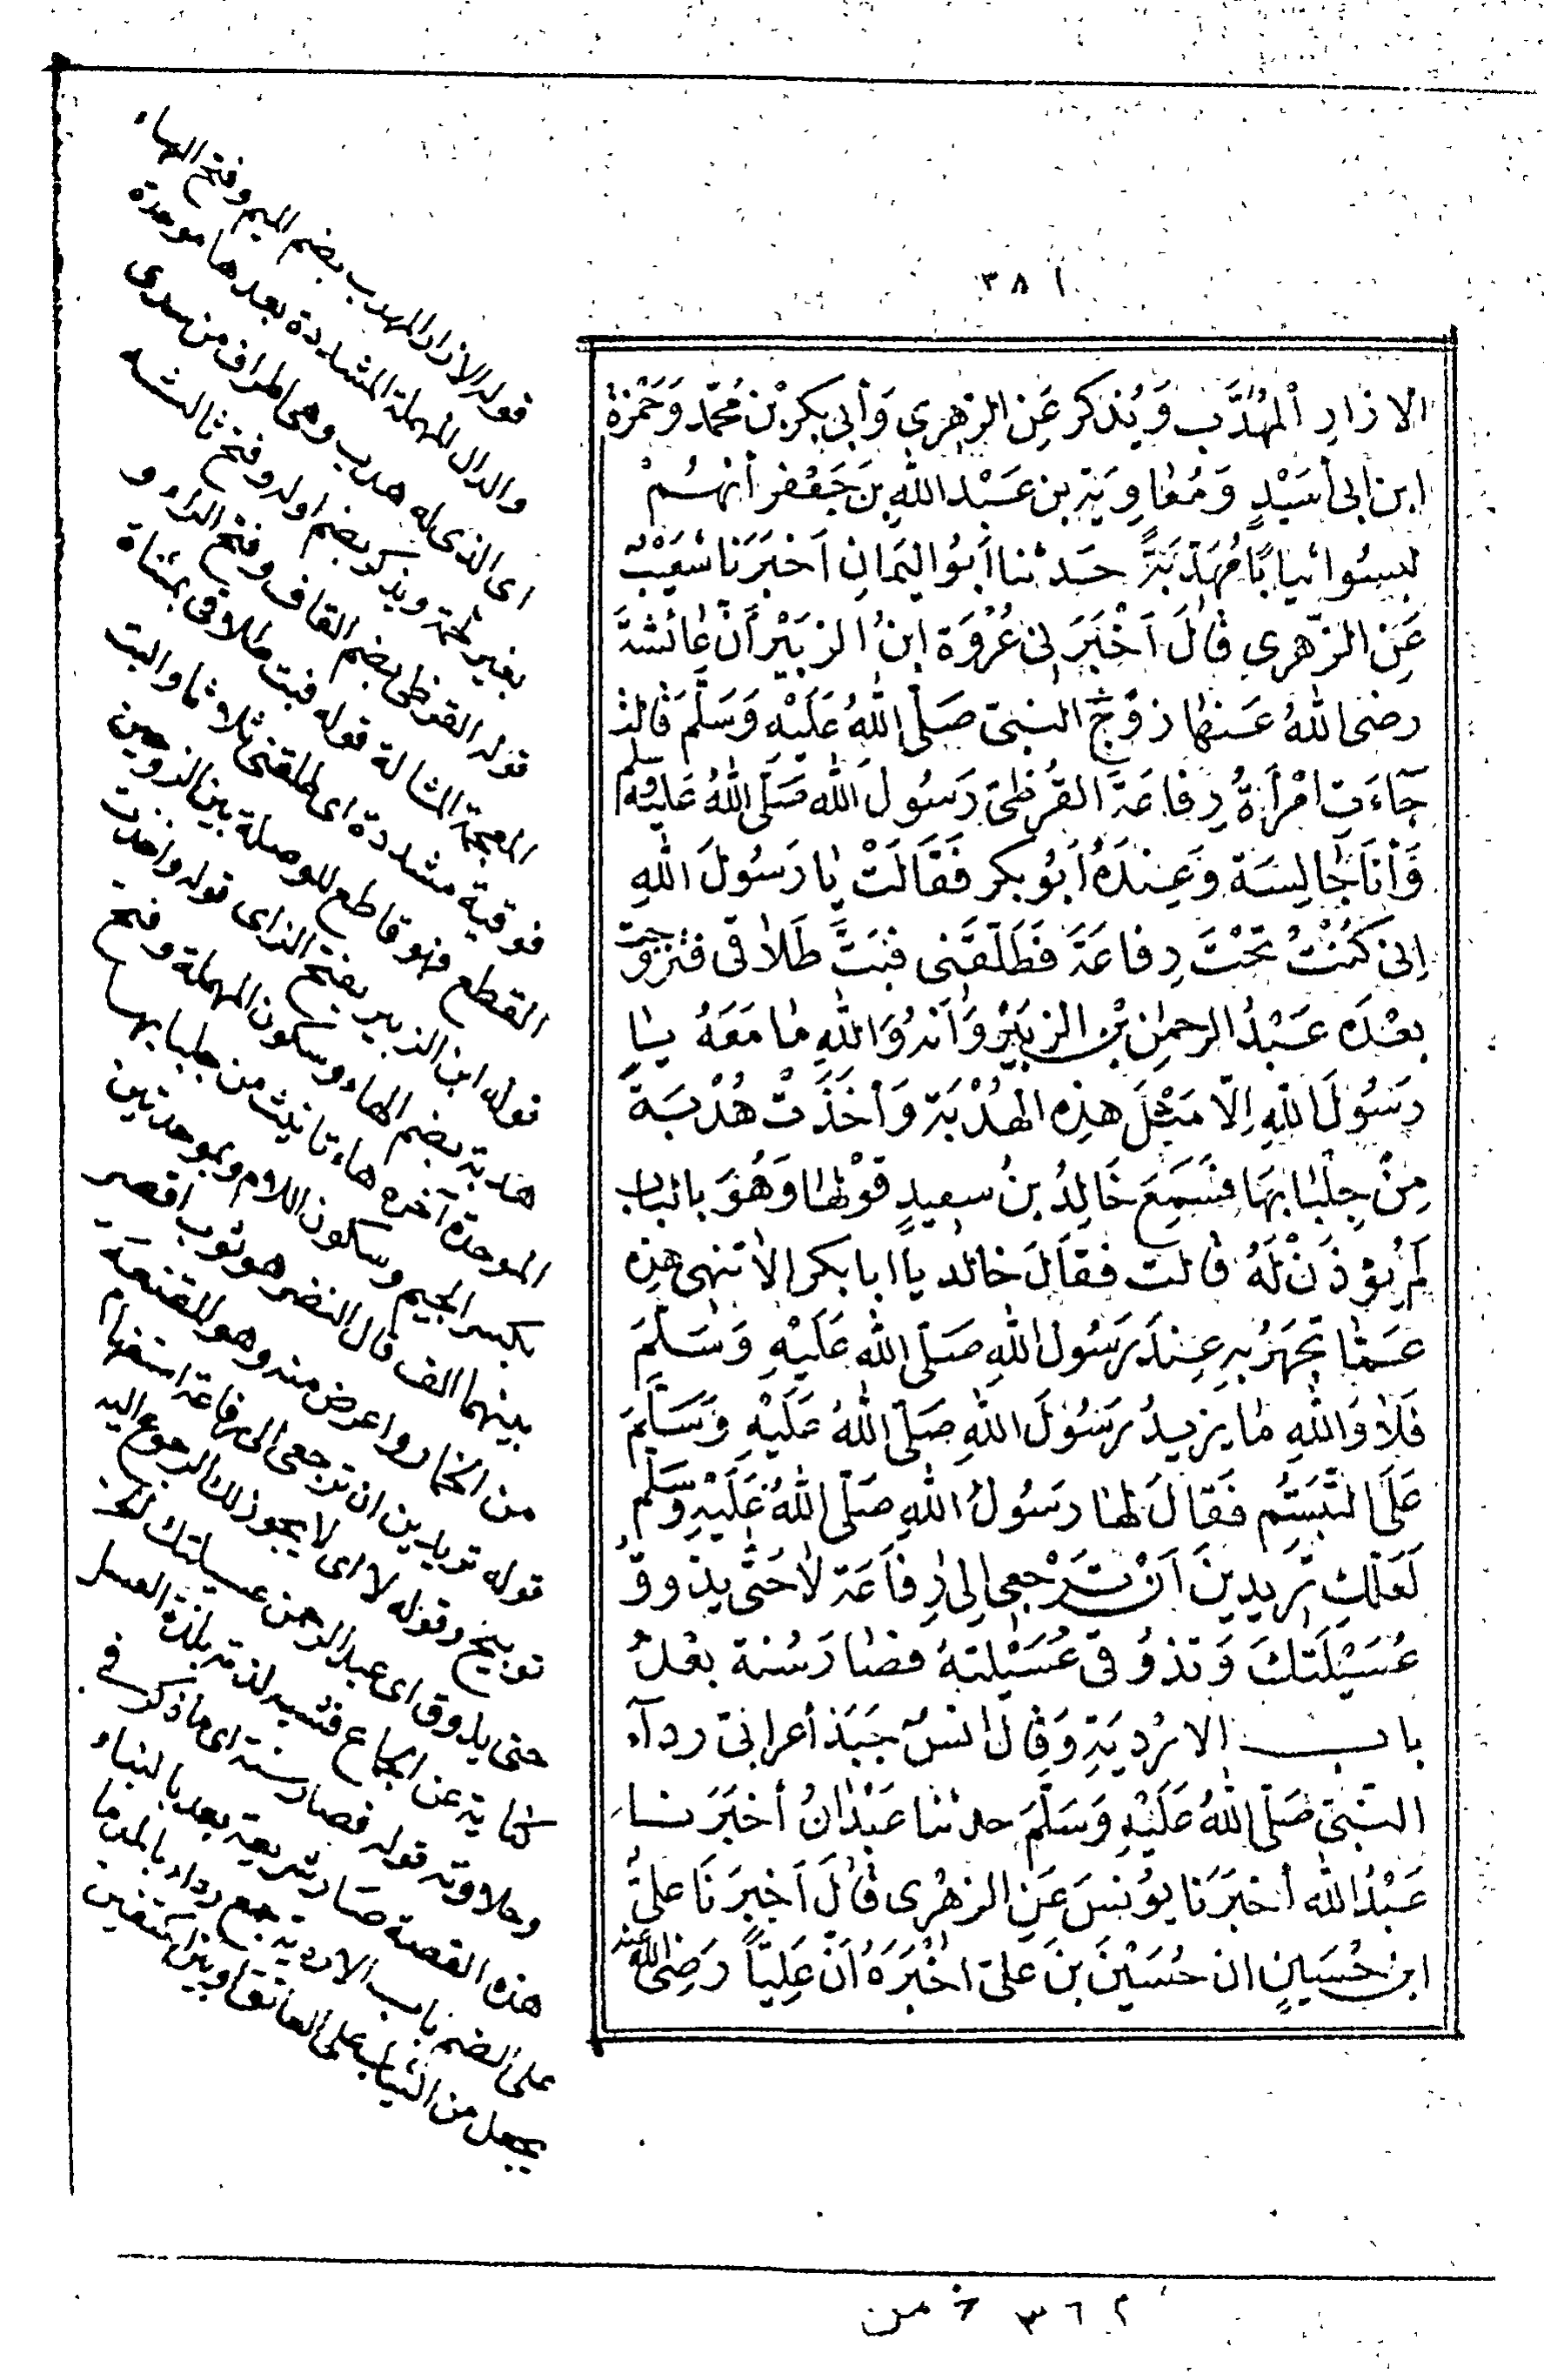 ٣٨١
الازار المُهَدَّب وَيُذكر عَنِ الزهري وَأبى بكر بْن مُحمّد وَحَمْزة
ابن ابى أسَيْدٍ وَمُعاوِيَة بن عَبْد اللهِ بن جَعْفر أنهُمْ
لبسُوا ثيابًا مُهَدَّبَةً حدثنا أبوُ اليَمانِ اَخْبَرَنا شعَيْبٌ
عَنِ الزّهري قالَ اَخْبَرَنى عُرْوَة ابنُ الزبَيْر أنّ عائشةَ
رضى اللهُ عَنها زوْجَ النبىّ صَلّى اللهُ عَلَيْهِ وَسَلَّمَ قالت
جآءَت امْرأةُ رِفاعَةَ القُرظىّ رَسُولَ الله صَلّى اللهُ عَليْهِ وسلم
وَأنَا جَالِسَة وَعِنْدَهُ أبُو بكر فَقَالَتْ يا رَسُولَ اللهِ
إنى كُنْتُ تَحْتَ رِفاعَةَ فَطَلّقَنى فبَتَّ طَلاقى فتزوّجت
بعْدَه عَبْدَ الرحمٰن بْن الزبَيْر وَاَنهُ وَاللهِ ما مَعَهُ يا
رَسُولَ اللهِ اِلّا مَثْلَ هذِه الهُدْبَة وَأخَذَتْ هُدْبَةً
مِنْ جِلْبَابهَا فسَمِعَ خَالِدُ بنُ سعيدٍ قوْلها وَهُوَ بالباب
لم يؤذَنْ لَهُ قالت فقَالَ خالد يا ابا بكر الا تنهى هذِه
عَمّا تَجهَرُ بهِ عِنْدَ رَسُول اللهِ صَلّى الله عَلَيْهِ وَسَلَّمَ
فَلا وَاللهِ ما يزيدُ رَسُوْلَ اللهِ صَلّى اللهُ عَلَيْهِ وَسَلَّمَ
عَلَى التّبَسّم فَقالَ لها رَسُولُ اللهِ صَلّى اللهُ عَلَيْهِ وَسَلّمَ
لَعَلّكِ تُريدِينَ اَنْ تَرْجعِى اِلى رِفاَعَة لا حَتّى يذوقَ
عُسَيْلَتَكَ وَتذُوُقى عُسَيْلتهُ فصَارَ سُنة بعْدُ
باب الارْدِيَةِ وَقالَ انسٌ جَبَذ أعرابىّ ردآء
النّبىّ صَلّى اللهُ عَلَيْهِ وَسَلَّمَ حدثنا عَبْدانُ أخبَرَنا
عَبْدُ الله أخبَرَنا يوُنسَ عَنِ الزهْرى قالَ اَخبَرَنَا علىُّ
ابن حُسَينٍ ان حُسَيْنَ بنَ علىّ اخْبَرَهُ اَنّ عَلِيّاً رَضِىَ الله عنه
قوله الازار المهدب بضم الميم وفتح الهاء
والدال المهملة المشددة بعدها موحدة
اى الذى له هدب وهى اطراف من سدى
بغير لحمة ويذكر بضم اوله وفتح ثالثه
قوله القرظى بضم القاف وفتح الراء و
المعجمة المشالة قوله فبت طلاقى بمثناة
فوقية مشددة اى طلقنى ثلاثا والبت
القطع فهو قاطع للوصلة بين الزوجين
قوله ابن الزبير بفتح الزاى قوله واخذت
هدبة بضم الهاء وسكون المهملة وفتح
الموحدة آخره هاء تانيث من جلبابها
بكسر الجيم وسكون اللام وبموحدتين
بينهما الف قال النضر هو ثوب اقصر
من الخمار واعرض منه وهو المقنعة
قوله تريدين ان ترجعى الى رفاعة استفهام
توبيخ وقوله لا اى لا يجوز ذلك الرجوع اليه
حتى يذوق اى عبد الرحمن عسيلتك
كناية عن الجماع فشبه لذته بلذة العسل
وحلاوته قوله فصار سنة اى ما ذكر فى
هذه القصة صار شريعة بعد بالبناء
على الضم باب الاردية جمع رداء بالمد ما
يجعل من الثياب على العاتق او بين الكتفين
٣٦٢ من